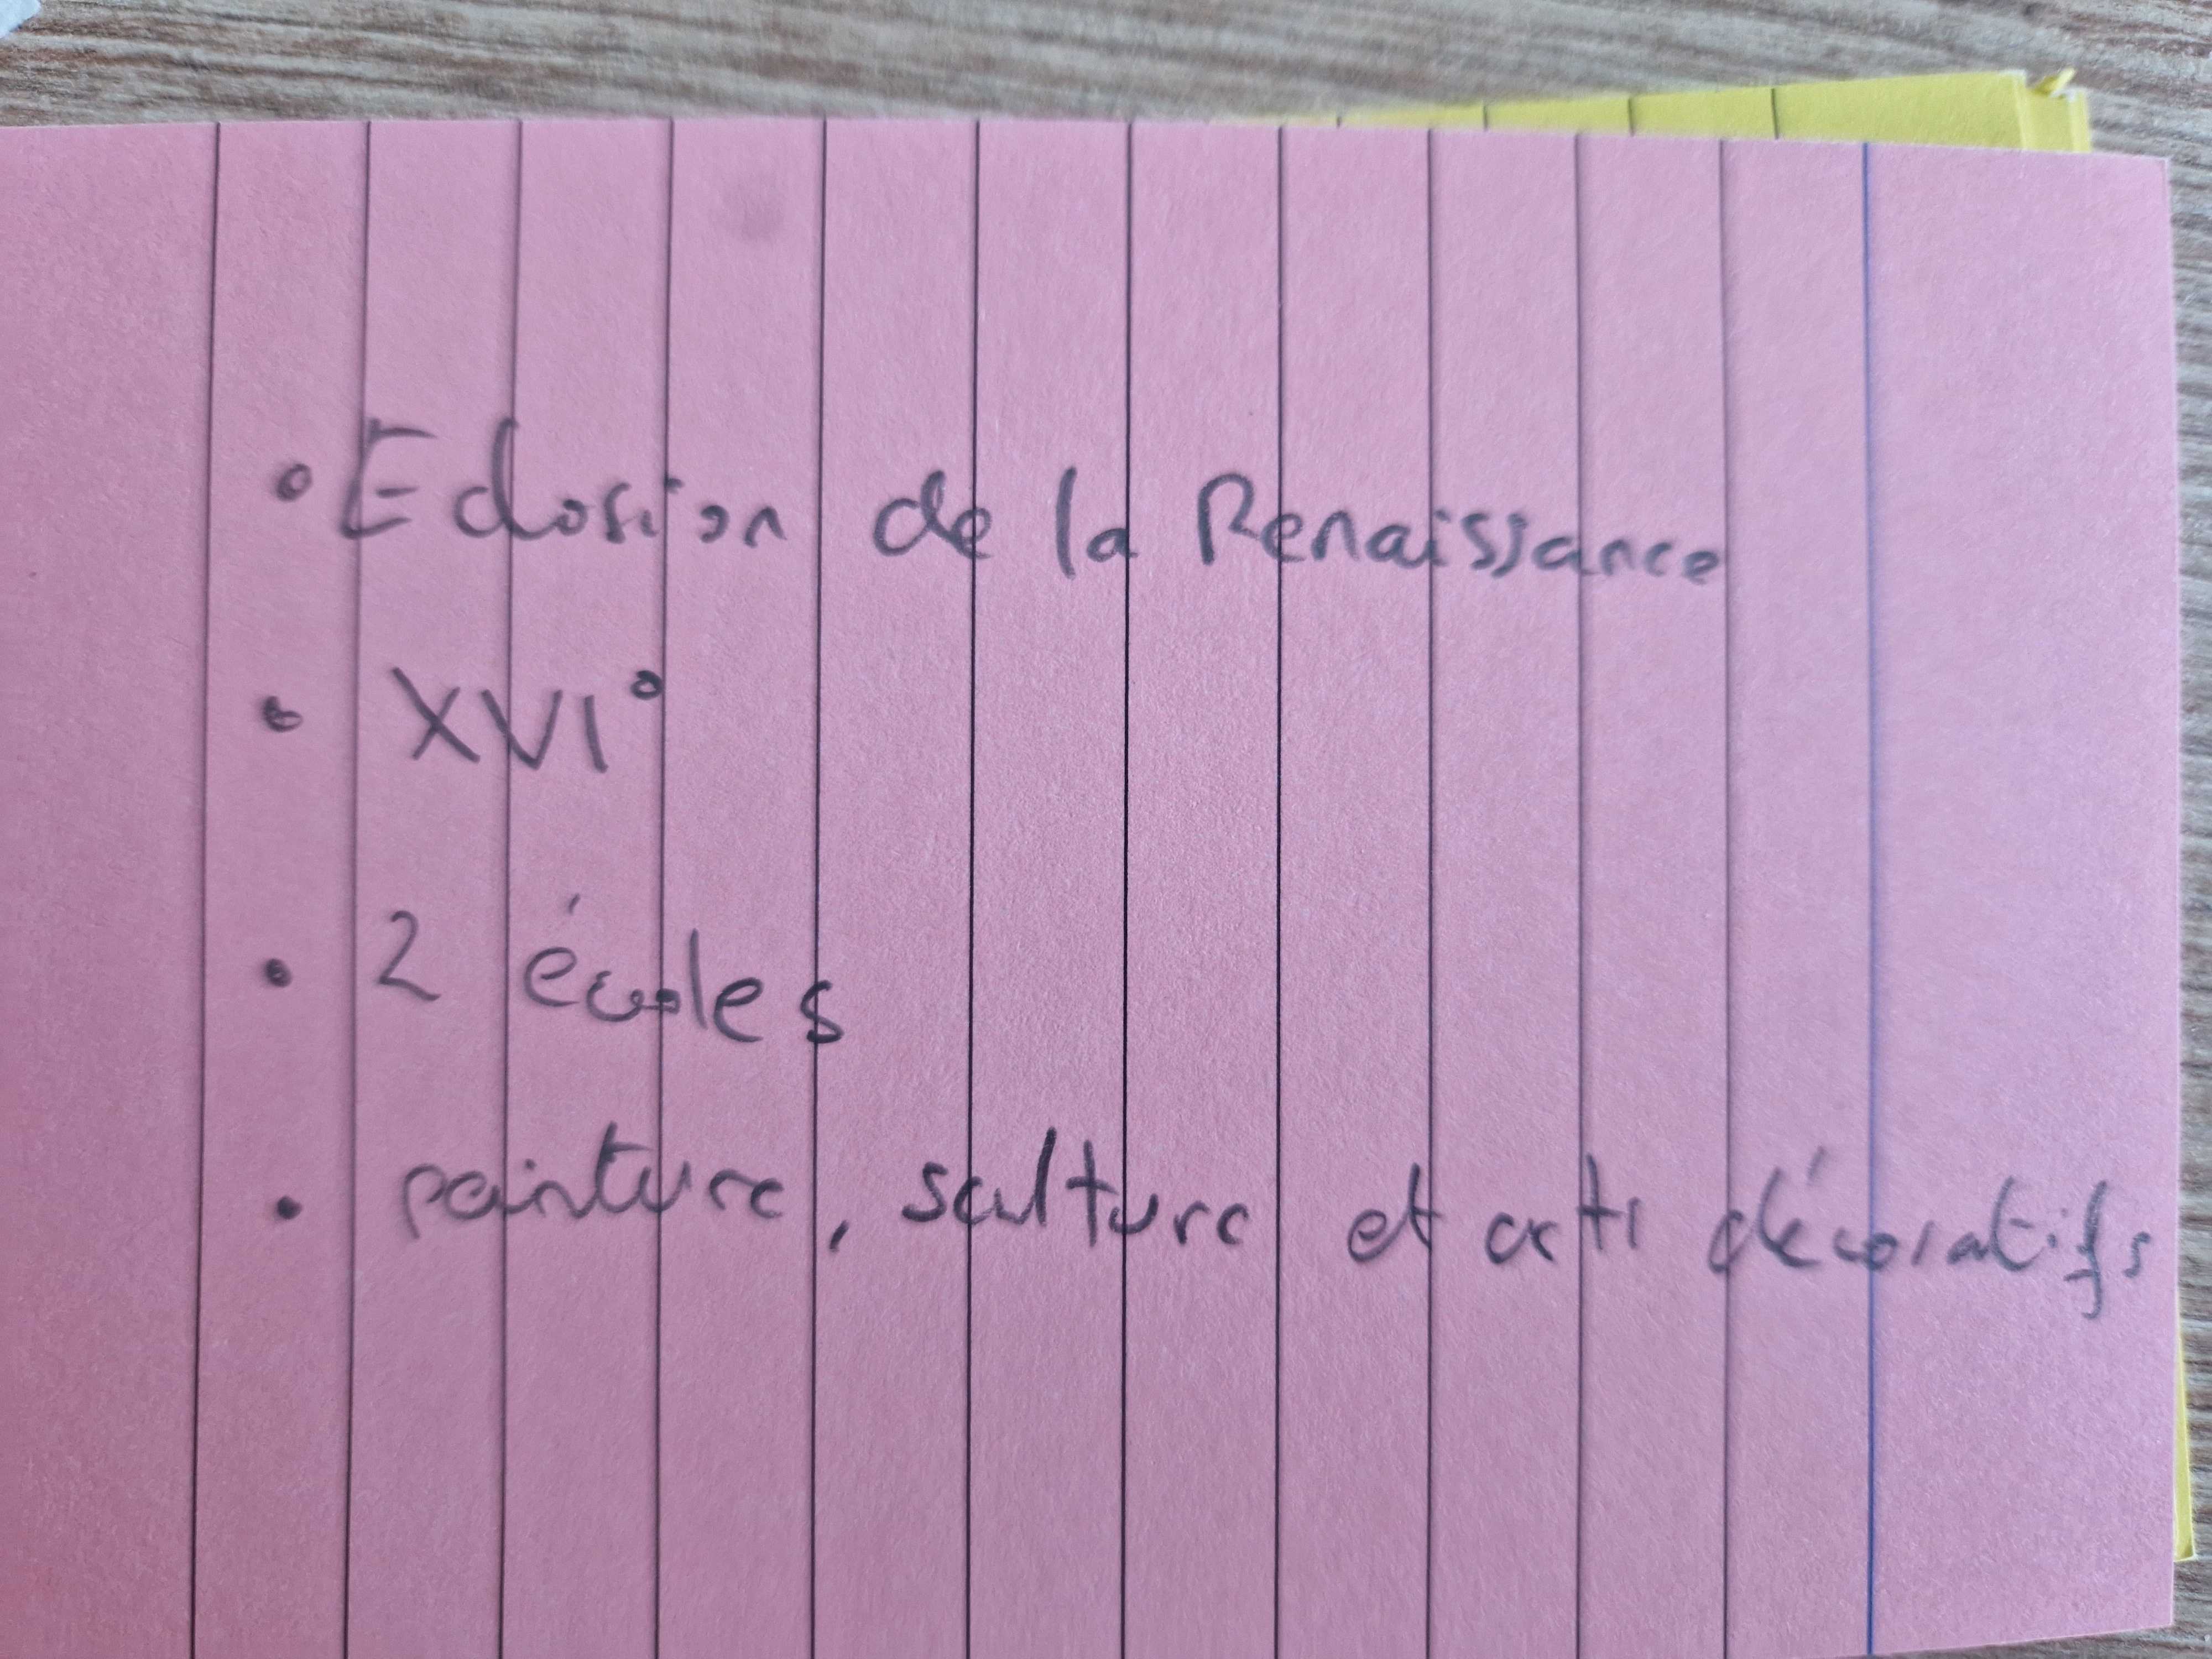 • Eclosion de la Renaissance
• XVI°
• 2 écoles
• peinture, sculture et arts décoratifs